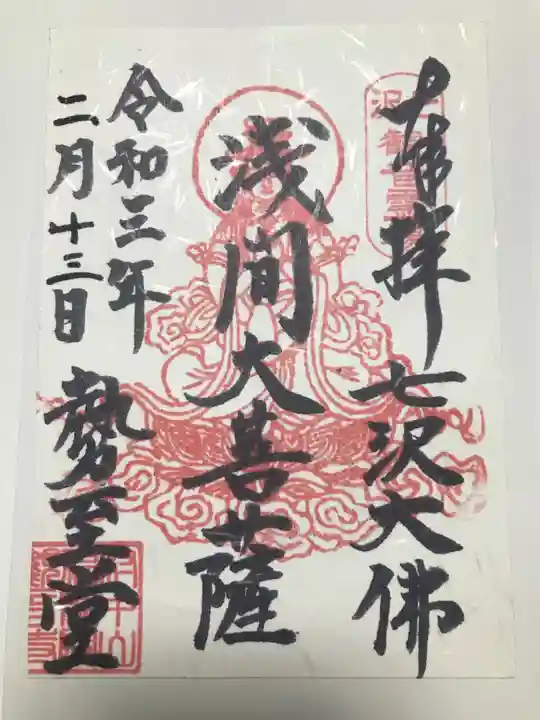 奉拝 七沢大佛
浅間大菩薩
令和三年
二月十三日
勢至堂